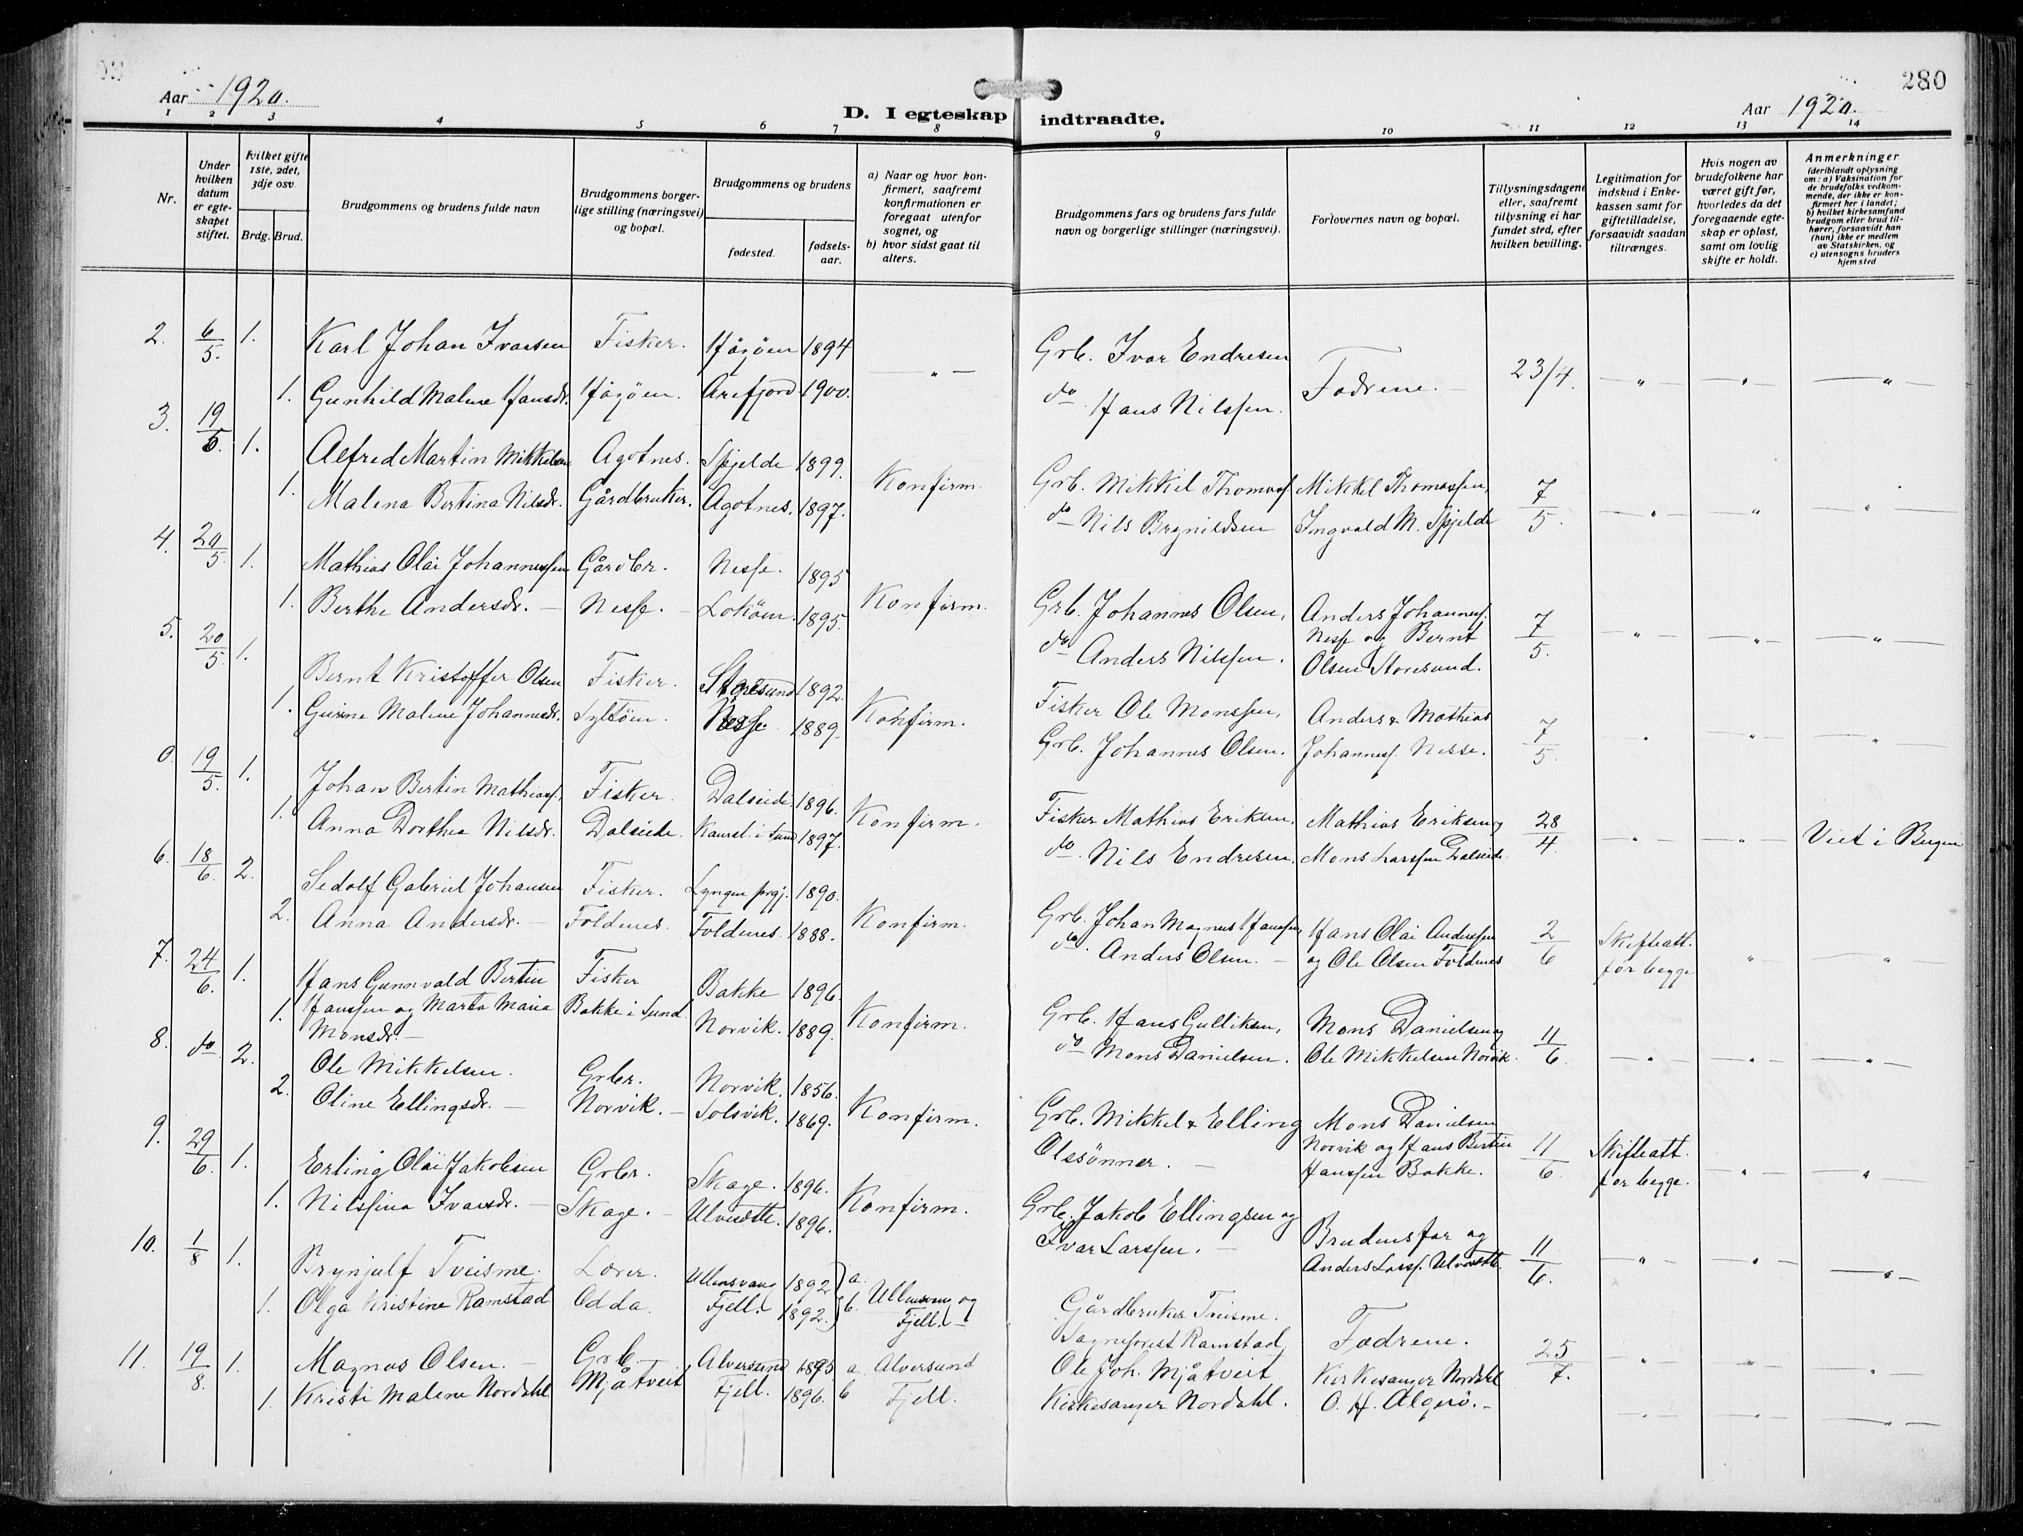 280
Aar 1920.
Aar 1920.
D. I egteskap indtraadte.
1 2 3 4 5 6 7 8 9 10 11 12 13 14
Nr.
Under hvilken datum er egteskapet stiftet.
hvilket gifte 1ste, 2det, 3dje osv.
Brdg. Brud.
Brudgommens og brudens fulde navn
Brudgommens borgerlige stilling (næringsvei) og bopæl.
Brudgommens og brudens
fødested.
fødselsaar.
a) Naar og hvor konfirmert, saafremt konfirmationen er foregaat utenfor sognet, og
b) hvor sidst gaat til alters.
Brudgommens fars og brudens fars fulde navn og borgerlige stillinger (næringsvei).
Forlovernes navn og bopæl.
Tillysningsdagene eller, saafremt tillysning ei har fundet sted, efter hvilken bevilling.
Legitimation for indskud i Enkekassen samt for giftetilladelse, forsaavidt saadan tiltrænges.
Hvis nogen av brudefolkene har været gift før, hvorledes da det foregaaende egteskap er opløst, samt om lovlig skifte er holdt.
Anmerkninger (deriblandt oplysning om: a) Vaksination for de brudefolks vedkommende, der ikke er konfirmert her i landet; b) hvilket kirkesamfund brudgom eller brud tilhører, forsaavidt han (hun) ikke er medlem av Statskirken, og c) utensogns bruders hjemsted
2. 6/5. 1. Karl Johan Ivarsen Fisker. Hågöen 1894 — " — Grb. Ivar Endresen Fædrene. 23/4. — " — " — "
1. Gunhild Malene Hansdr. Hågöen. Arefjord 1900. do Hans Nilssen.
3. 19/5. 1. Alfred Martin Mikkelsen Agotnes. Spjelde 1899. Konfirm. Grb. Mikkel Thomass. Mikkel Thomassen, 7/5.
1. Malena Bertina Nilsdr. Gårdbruker. Agotnes. 1897. do Nils Brynildsen Ingvald M. Spjelde
4. 20/5. 1. Mathias Olai Johannessen Gårdbr. Nesse. 1895 Konfirm. Grb. Johannes Olsen, Anders Johanness. 7/5.
1. Berthe Andersdr. — Nesse. — Loköen. 1895. do Anders Nilssen. Nesse og Bernt
Olsen Storesund.
5. 20/5. 1. Bernt Kristoffer Olsen Fisker. Storesund 1892. Konfirm. Fisker Ole Monssen, Anders & Mathias 7/5.
1. Gurine Malene Johannesdr. Syltöen. Nesse. 1889. Grb. Johannes Olsen. Johanness. Nesse.
0. 19/5. 1. Johan Bertin Mathiass. Fisker. Dalseide 1896. Konfirm. Fisker Mathias Eriksen, Mathias Eriksen og 28/4 Viet i Bergen
1. Anna Dorthea Nilsdr. Dalseide. Kaursl. i Sund 1897. do. Nils Endresen, Mons Larssen Dalseide
6. 18/6. 2. Sedolf Gabriel Johansen Fisker. Lyngen prgj. 1890. Konfirm. Grb. Johan Magnus Hanssen, Hans Olai Anderssen 2/6 Skifteatt.
2. Anna Andersdr. — Foldenes. Foldenes. 1888. do. Anders Olsen. — og Ole Olsen Foldenes for begge
7. 24/6. 1. Hans Gunnvald Bertin Fisker Bakke 1896. Konfirm. Grb. Hans Gulliksen, Mons Danielsen og 11/6.
1. Hanssen og Marta Maria Bakke i Sund. Norvik. 1889. do Mons Danielsen. Ole Mikkelsen Norvik.
Monsdr. —
8. do 2. Ole Mikkelsen. Grbr. Norvik. 1856. Konfirm. Grb. Mikkel & Elling Mons Danielsen 11/6 Skifteatt.
2. Oline Ellingsdr. — Norvik. — Solsvik. 1869. Olssönner. — Norvik og Hans Bertin for begge.
Hanssen Bakke.
9. 29/6. 1. Erling Olai Jakobsen Grbr. Skage. 1896. Konfirm. Grb. Jakob Ellingsen og Brudens far og 11/6.
1. Nilsfina Ivarsdr. — Skage. — Ulvesætte. 1896. Ivar Larssen. — Anders Larss. Ulvesætte
10. 1/8 1. Brynjulf Tveisme. Lærer. Ullensvang 1892 a. Ullensvang og Gårdbruker Tveisme. Fædrene. 25/7.
1. Olga Kristine Ramstad Odda. Fjell. 1892. b. Fjell. — Sogneprest Ramstad
11. 19/8. 1. Magnus Olsen. — Grb. — Alversund 1895 a. Alversund Ole Joh. Mjåtveit Kirkesanger Nordahl
1. Kristi Malene Nordahl Mjåtveit Fjell. 1896. b Fjell. Kirkesanger Nordahl. O. H. Algerö. —